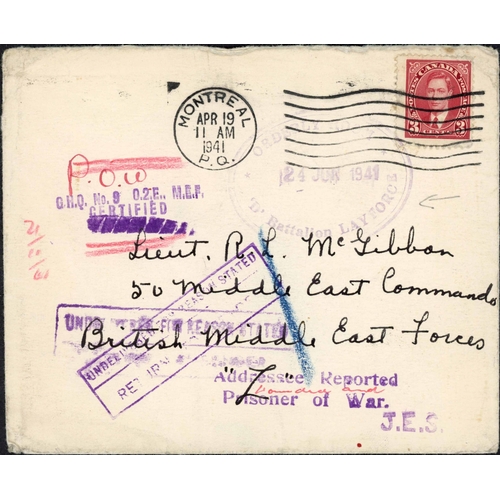 MONTREAL
APR 19
11 AM
1941
P.Q.
POSTES CANADA POSTAGE
3 CENTS 3
ORDERLY
24 JUN 1941
"D" Battalion LAYFORCE
P.O.W
O.H.Q. No. 9 O.2.E., M.E.F.
CERTIFIED
Lieut. R. L. McGibbon
50 Middle East Commando
British Middle East Forces
"Z"
UNDELIVERED FOR REASON STATED
UNDELIVERED FOR REASON STATED
RETURN
Addressee Reported
Wounded and
Prisoner of War.
J.E.S.